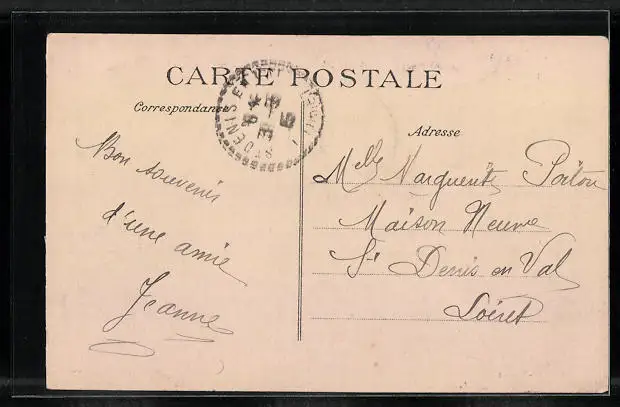 CARTE POSTALE
Correspondance
Bon souvenir
d'une amie
Jeanne
Adresse
Melle Marguerite Poiton
Maison Neuve
St Denis en Val
Loiret
ST DENIS E